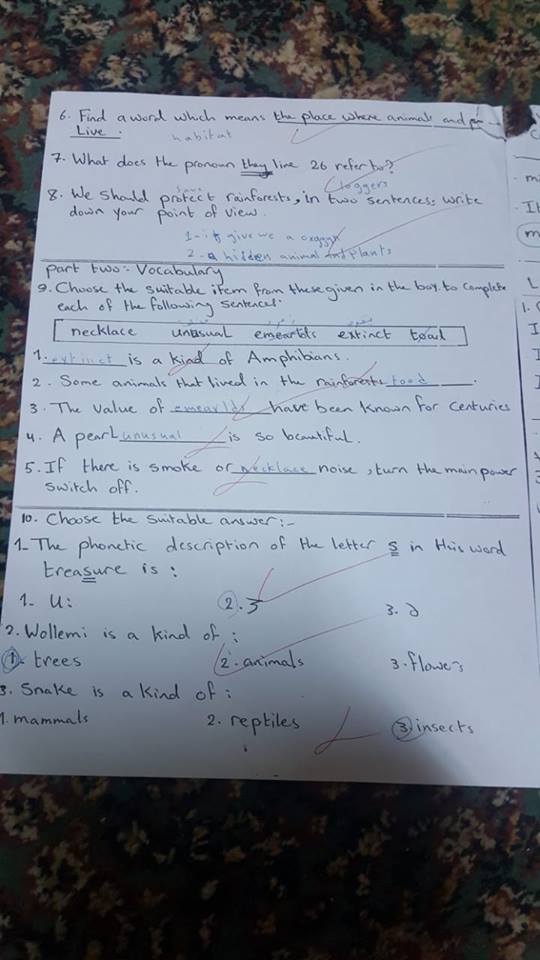 6. Find a word which means the place where animals and
Live.
habitat
7. What does the pronoun they line 26 refer to?
loggers
save
8. We should protect rainforests, in two sentences, write
down your point of view.
1- it give we a oxggyn
2- a hidden animal and plants
part two:- Vocabulary
9. Choose the suitable item from these given in the box to complete
each of the following sentences:
necklace unusual emearlds extinct toad
1. extinct is a kind of Amphibians.
2. Some animals that lived in the rainforests toad.
3. The value of emearlds have been known for centuries
4. A pearl unusual is so beautiful.
5. If there is smoke or necklace noise, turn the main power
switch off.
10. Choose the suitable answer:-
1- The phonetic description of the letter s in this word
treasure is :
1- U: 2. 3 3. ∂
2. Wollemi is a kind of :
1. trees 2. animals 3. flowers
3. Snake is a kind of :
1. mammals 2. reptiles 3. insects